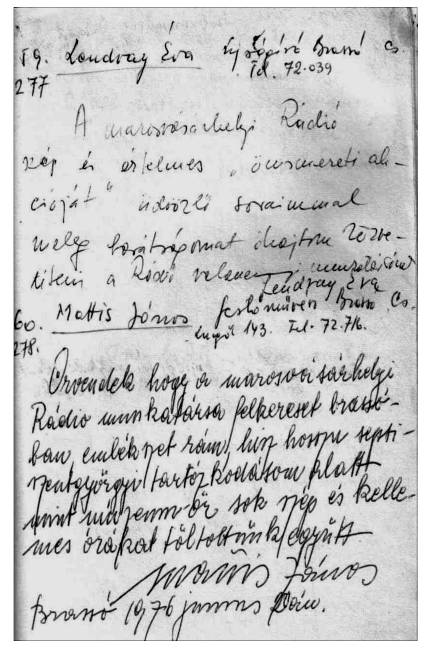 59. Lendvay Éva újságíró Brassó Cs.
Tel. 72.039
277
A marosvásárhelyi Rádió
szép és értelmes „önismereti ak-
cióját" üdvözlő soraimmal
meleg barátságomat óhajtom közve-
títeni a Rádió valamennyi munkatársának
Lendvay Éva
60. Mattis János festőművész Brassó Cs.
278. 143. Tel. 72.716.
Örvendek hogy a marosvásárhelyi
Rádió munkatársa felkereset brassó-
ban, emlékszet rám, hisz hosszu septi-
szentgyörgyi tartózkodásom alatt
mint muzeum őr sok szép és kelle-
mes órákat töltöttünk együtt
Mattis János
Brassó 1976 junius